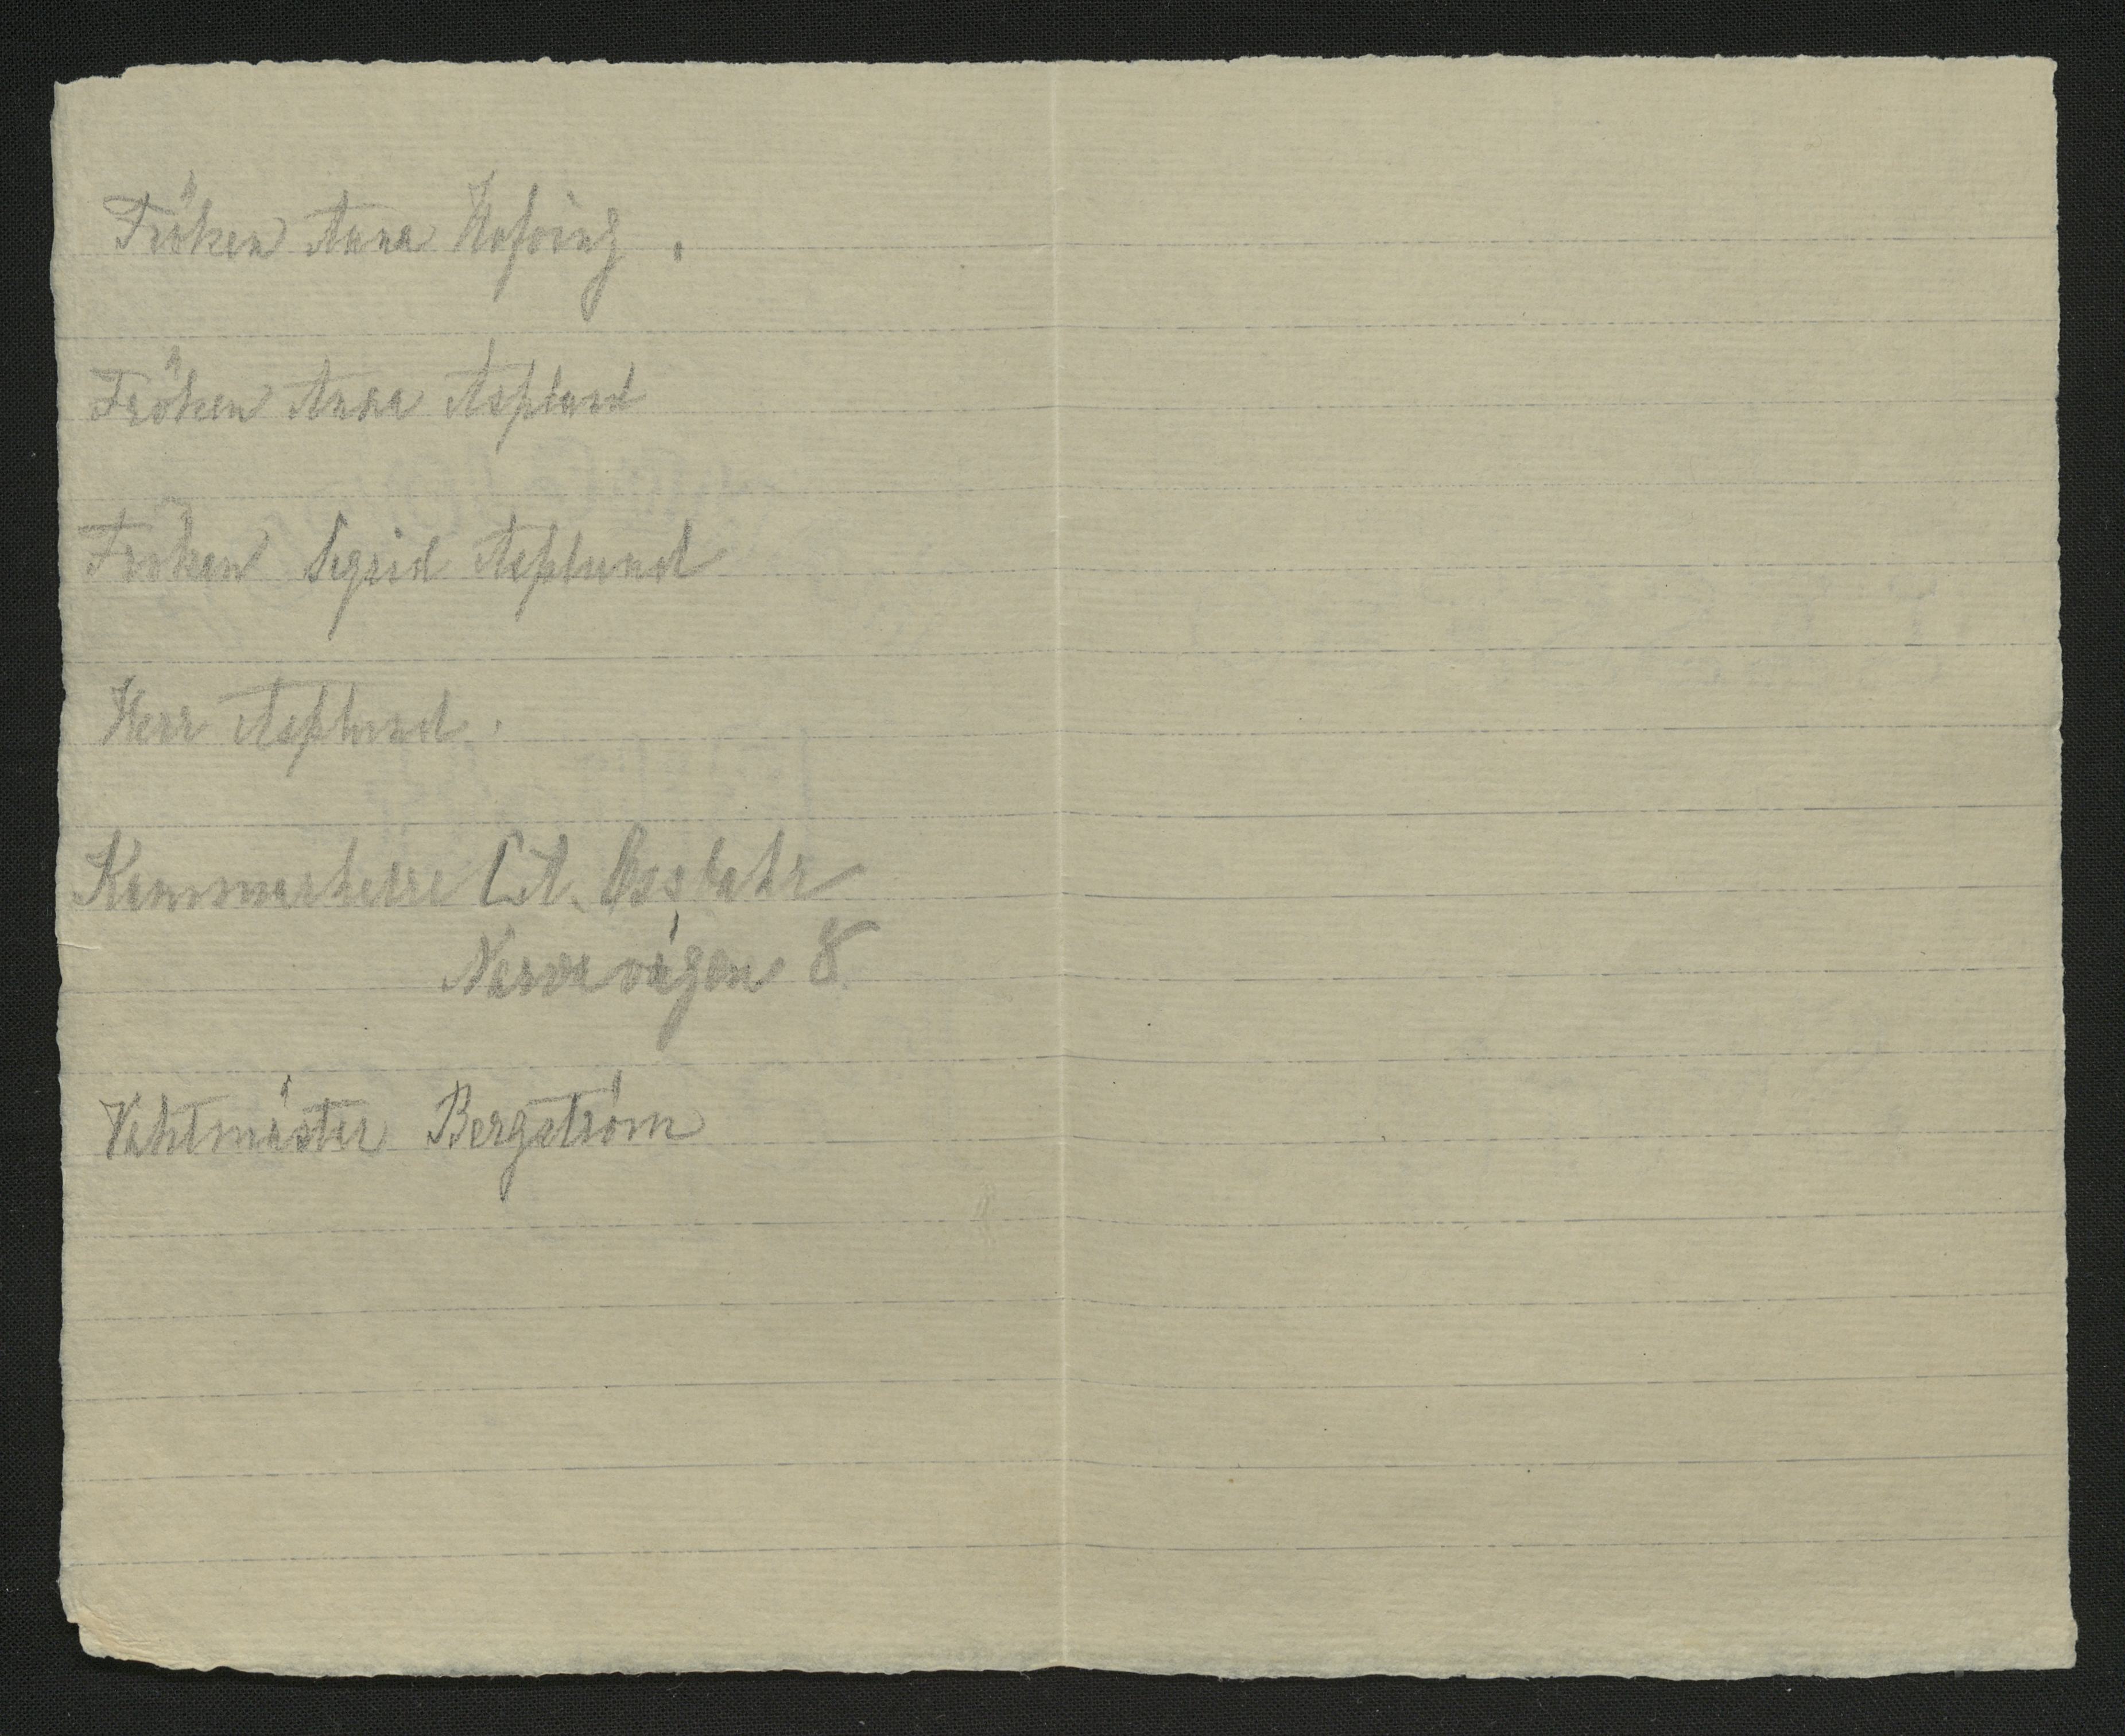 Fröken Anna Hofving.
Fröken Anna Asplund
Fröken Sigrid Asplund
Herr Asplund.
Kammarherre
Narvavägen 8
Vaktmäster Bergström